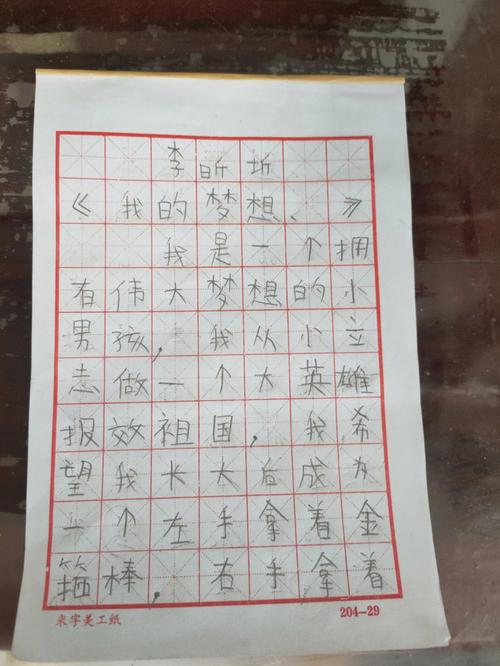 李昕圻
《我的梦想、》
我是一个拥
有伟大梦想的小
男孩，我从小立
志做一个大英雄
报效祖国，我希
望我长大后成为
一个左手拿着金
箍棒，右手拿着
米字美工纸 204-29